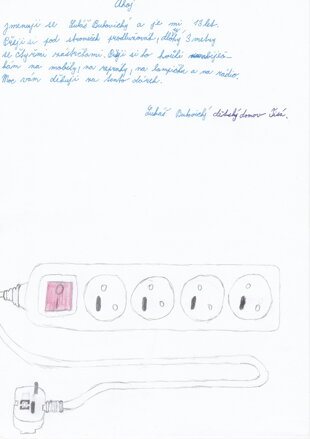 Ahoj
jmenuji se Lukáš Bukovický a je mi 13 let.
Přeji si pod stromeček prodlužovák, dlouhý 3 metry
se čtyřmi zásuvkami. Přeji si to kvůli nabíječ-
kám na mobily, na repráky, na lampičku a na rádio.
Moc vám děkuji za tento dárek.
Lukáš Bukovický dětský domov